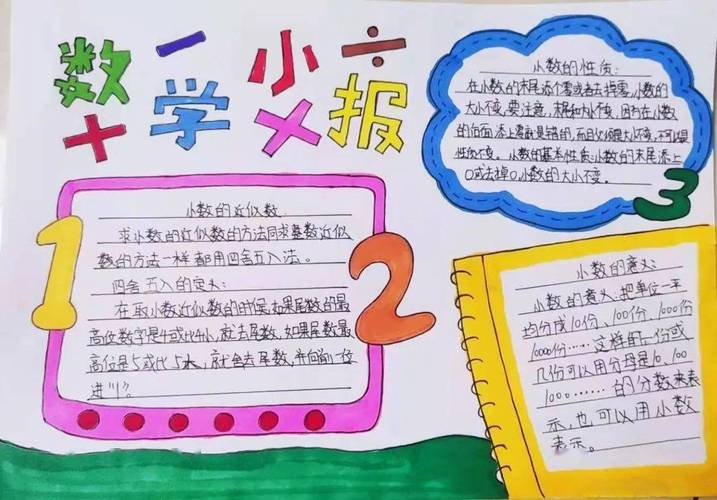 数学小报
小数的近似数
求小数的近似数的方法同求整数近似
数的方法一样都用四舍五入法。
四舍五入的定义:
在取小数近似数的时候,如果尾数的最
高位数字是4或比4小,就去尾数,如果尾数最
高位是5或比5大,就舍去尾数,并向前一位
进"1"。
1
2
小数的性质:
在小数的末尾添个零或者去掉零,小数的
大小不变,要注意,末尾和
添上
0或去掉0,小数的大小不变。
3
小数的意义:
小数的意义:把单位一平
均分成10份、100份、1000份
10000份……这样的一份或
几份可以用分母是10、100
1000……的分数来表
示,也可以用小数
表示。